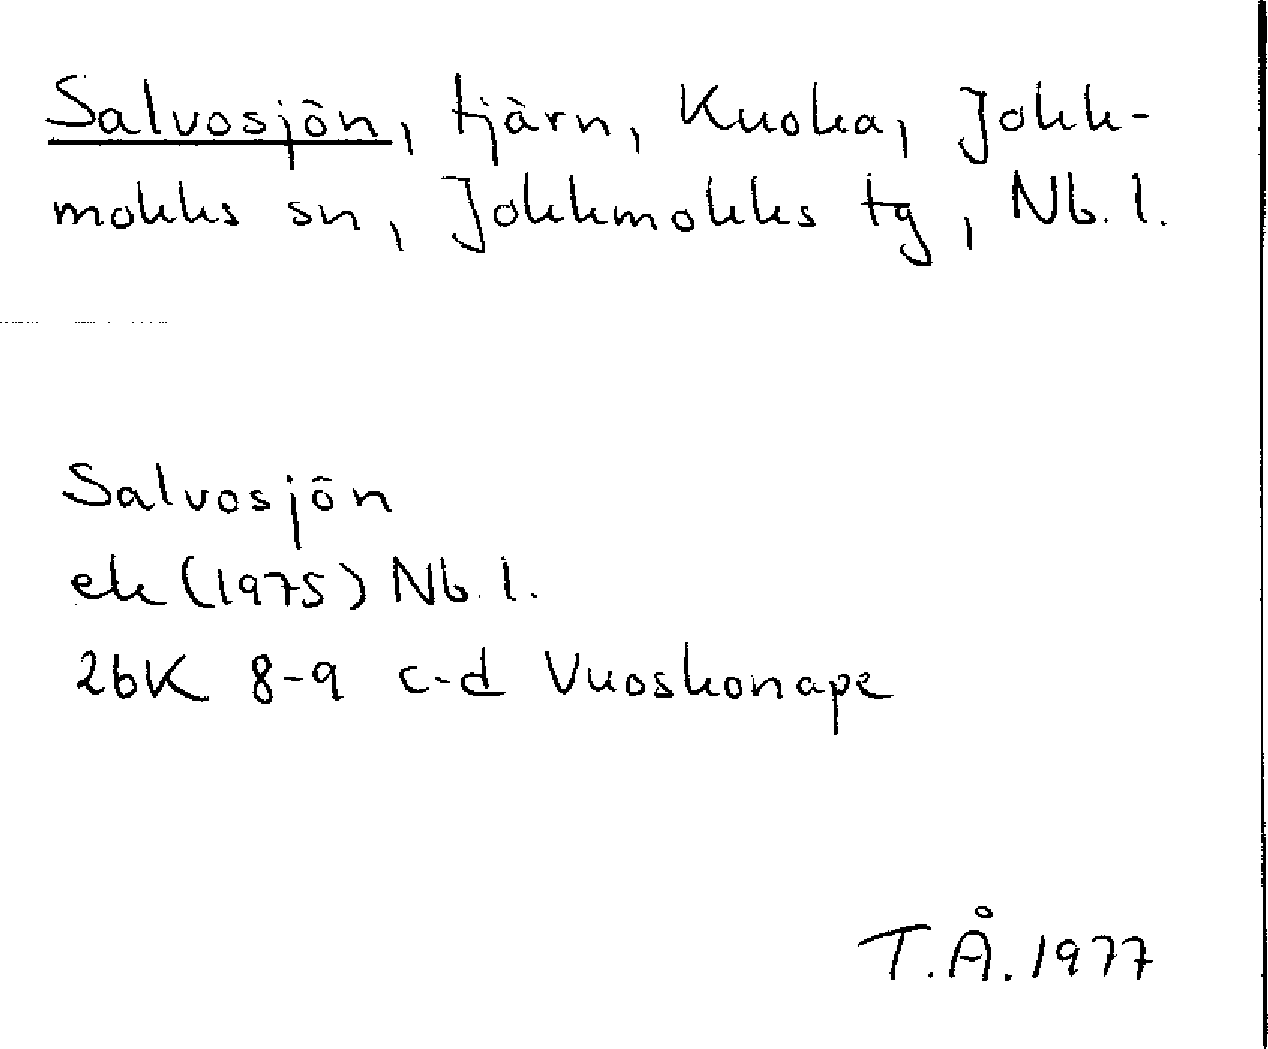 Salvosjön, tjärn, Kuoka, Jokk-
mokks sn, Jokkmokks tg, Nb. l.
Salvosjön
ek (1975) Nb. l.
26K 8-9 c-d Vuoskonape
T.Å. 1977